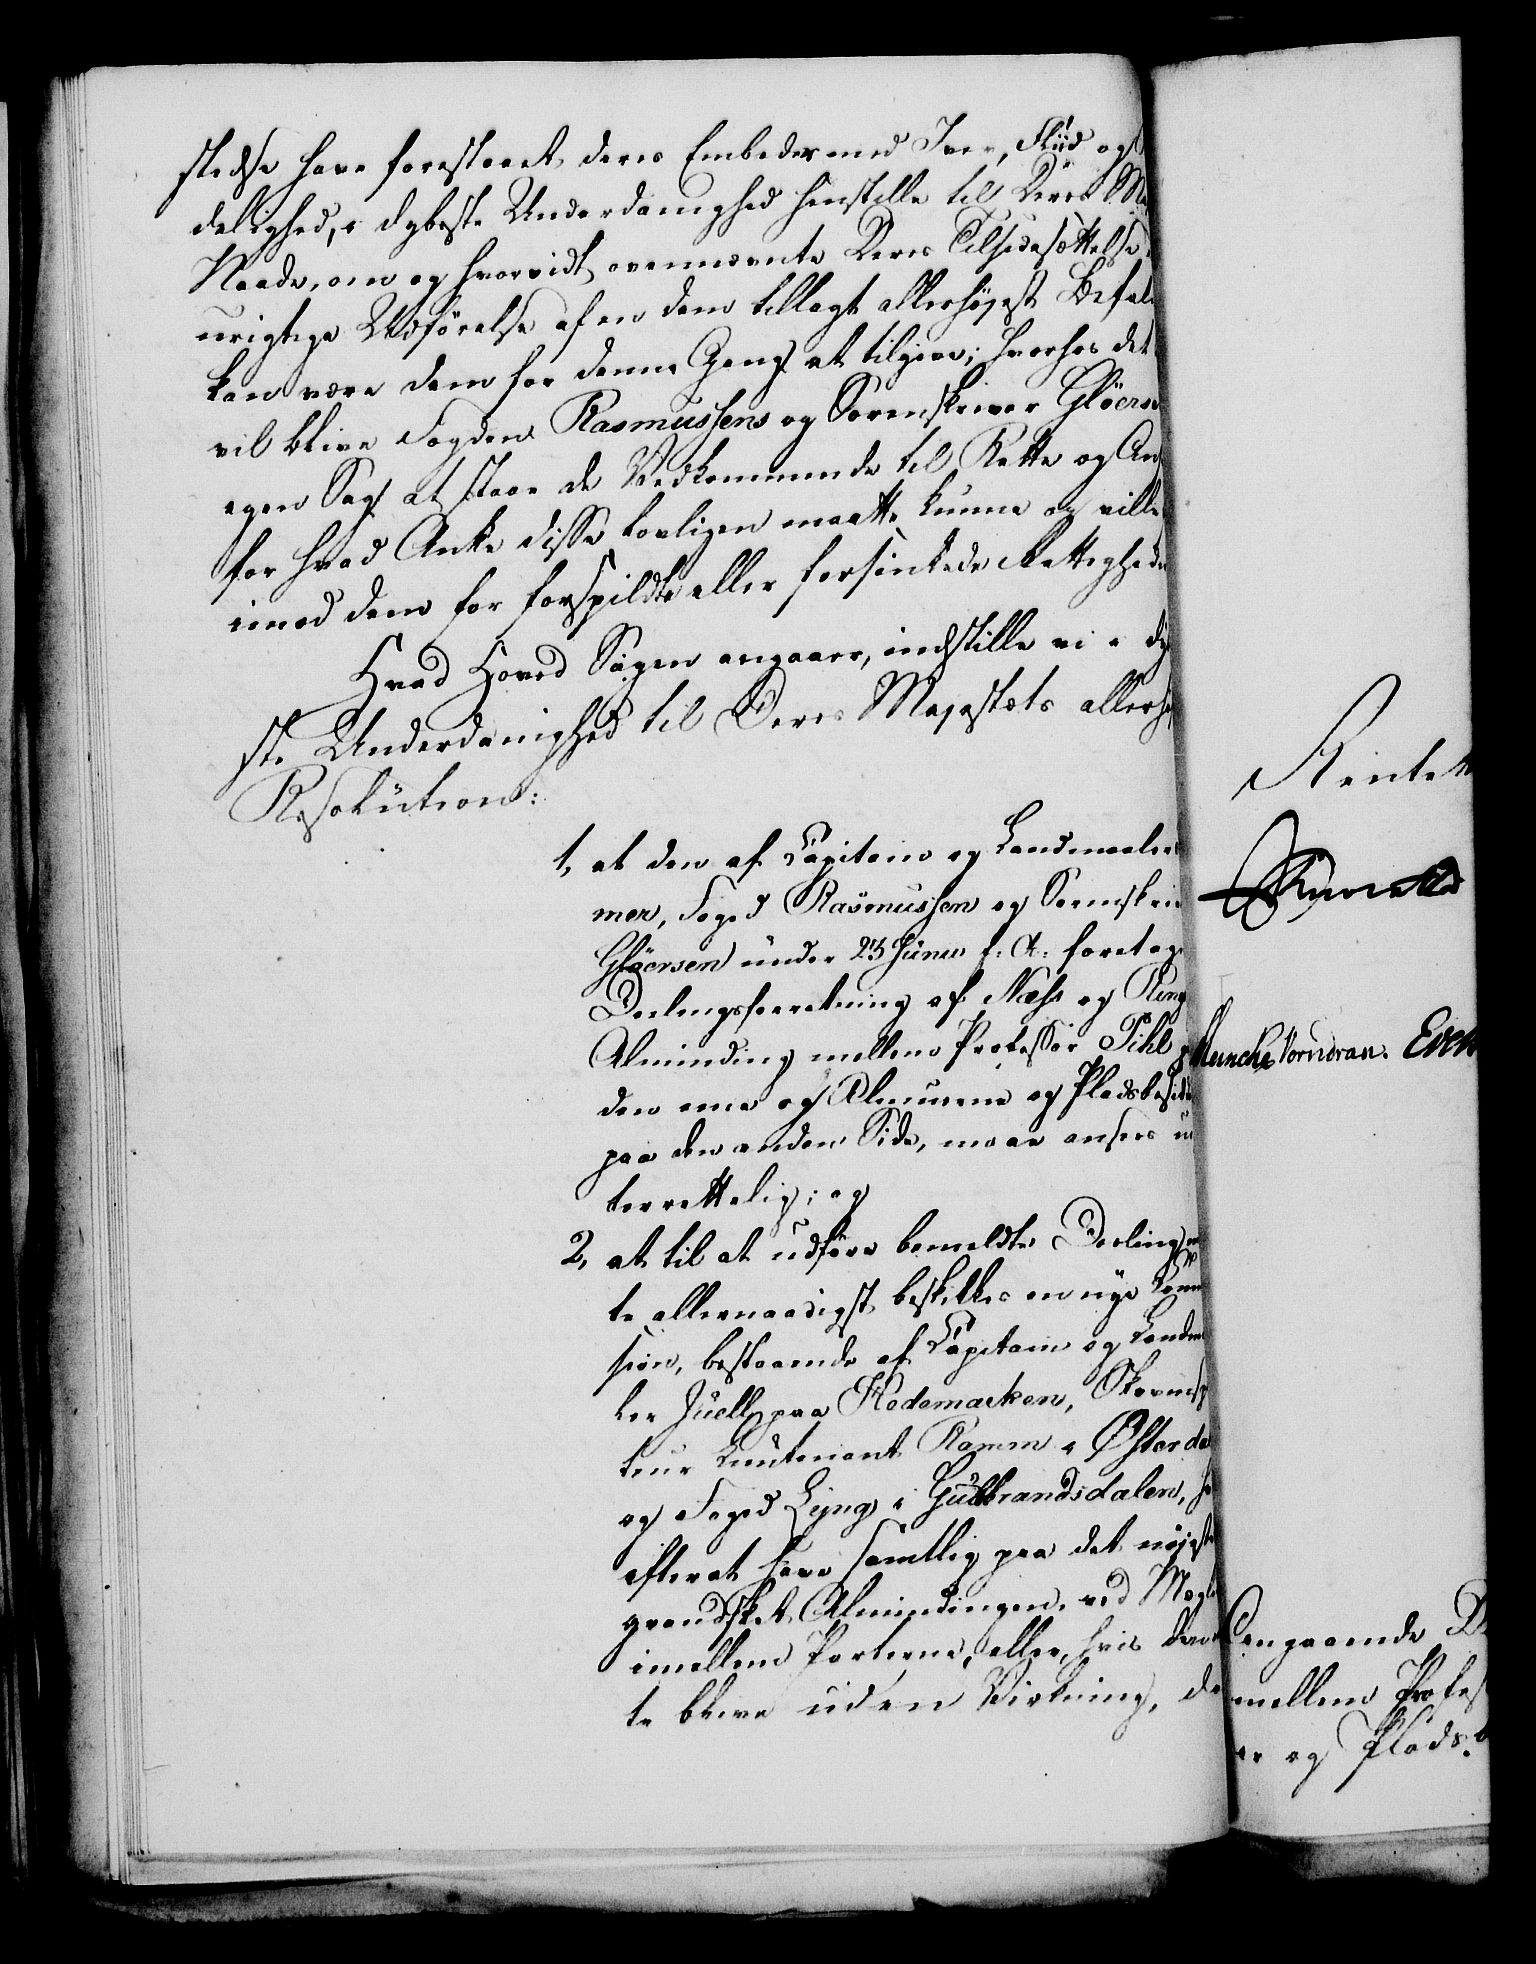 stedse have forestaaet deres Embeder med Iver, Fliid og
delighed, i dybeste Underdanighed henstille til Deres Ma
Naade, om og hvorvidt ovennævnte Deres Tilsidesættelse
urigtige Udførelse af en dem tillagt allerhøjest Befal
kan være dem for denne Gang at tilgive; hvorhos det
vil blive Fogden Rasmussens og Sorenskriver Gløerse
egen Sag at staae de Vedkommende til Rette og An
for hvad Anke disse lovligen maatte kunne og ville
imod dem for forspildte eller forsinkede Rettighede
Hvad Hoved Sagen angaaer, indstille vi i dy
ste Underdanighed til Deres Majestæts allerhø
Resolution:
1, at den af Capitain og Landmaaler
mer, Foged Rasmussen og Sorenskri
Gløersen under 25 Junii f: A: foretag
Deelingsforretning af Næss og Ring
Alminding mellem Professor Pihl p
den ene og Almuene og Pladsbesid
paa den anden Side, maae ansees u
terrettelig; og
2, at til at udføre bemeldte Deeling
te allernaadigst beskikkes en nye Com
sion, bestaaende af Capitain og Landm
ler Juell paa Hedemarken, Skovinsp
teur Lieutenant Ramm i Østerda
og Foged Lyng i Gulbrandsdalen, h
efterat have samtlig paa det nøjeste
grandsket Almindingen, ved Mægl
imellem Parterne, eller, hvis den
te blive uden Virkning, de
Rentek
Muncke Vornoran.
angaaende D
mellem Profes
er og Plads b